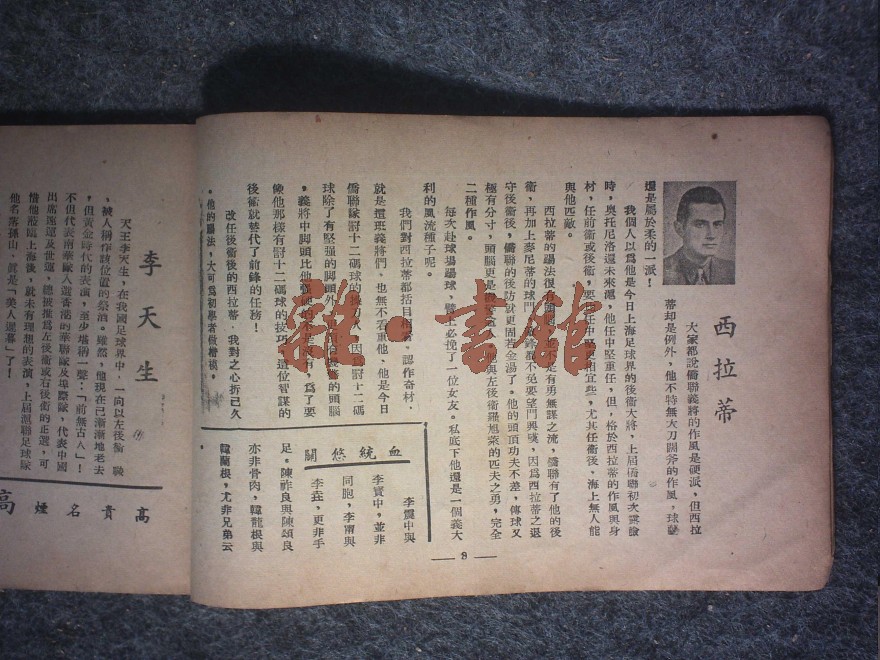 西拉蒂
大家都說僑聯義將的作風是硬派，但西拉
蒂却是例外，他不特無大刀闊斧的作風，球藝
還是屬於柔的一派！
我個人以爲他是今日上海足球界的後衞大將，上屆僑聯初次
時，奧托尼洛還未來滬，他任中堅重任，但，格於西拉蒂的作風與身
材，任前衞或後衞，要 任中堅更相宜些，尤其任衞後，海上無人能
與他匹敵。
西拉蒂的踢法很有 是有勇無謀之流，僑聯有了他的後
衞，再加上麥尼蒂的球門 鋒都不免要望門興嘆，因爲西拉蒂之退
守後衞後，僑聯的後防就更固若金湯了。他的頭頂功夫不差，傳球又
極有分寸，頭腦更是 與左後衞羅旭菜的匹夫之勇，完全
二種作風。
每次赴球場踢球，臂上必挽了一位女友。私底下他還是一個義大
利的風流種子呢。
我們對西拉蒂都括目相看，認作奇材，
就是連班義將們，也無不看重他，他是今日
僑聯隊冠十二碼球的操刀人，因爲冠十二碼
球除了有堅强的脚頭外， 的頭腦
，義將中脚頭比他强硬的不是沒有，爲了要
像他那樣有冠十二碼球的技巧， 這位智謀的
後衞就替代了前鋒的任務！
改任後衞後的西拉蒂，我對之心折已久
。他的踢法，大可爲初學者做楷模。
血統悠關
李震中與
李寶中，並非
同胞，李甯與
李垚，更非手
足。陳祚良與陳頌良
亦非骨肉，韓龍根與
韓蘭根，尤非兄弟云
。
— 9 —
李天生
天王李天生，在我國足球界中，一向以左後衞
，被人稱作該位置的祭酒。雖然，他現在已漸漸地老去
，但黃金時代的表演，至少堪稱一聲：「前無古人」！
不但代表南華歐人遊香港的華聯隊及埠際隊，代表中國
出席遠運及世運，總被推爲左後衞或右後衞的正選，可
惜他蒞臨上海後，就未有理想的表演，上屆滬聯足球隊
他名落孫山，眞是「美人遲暮」了！
高貴名煙
高
雜·書館